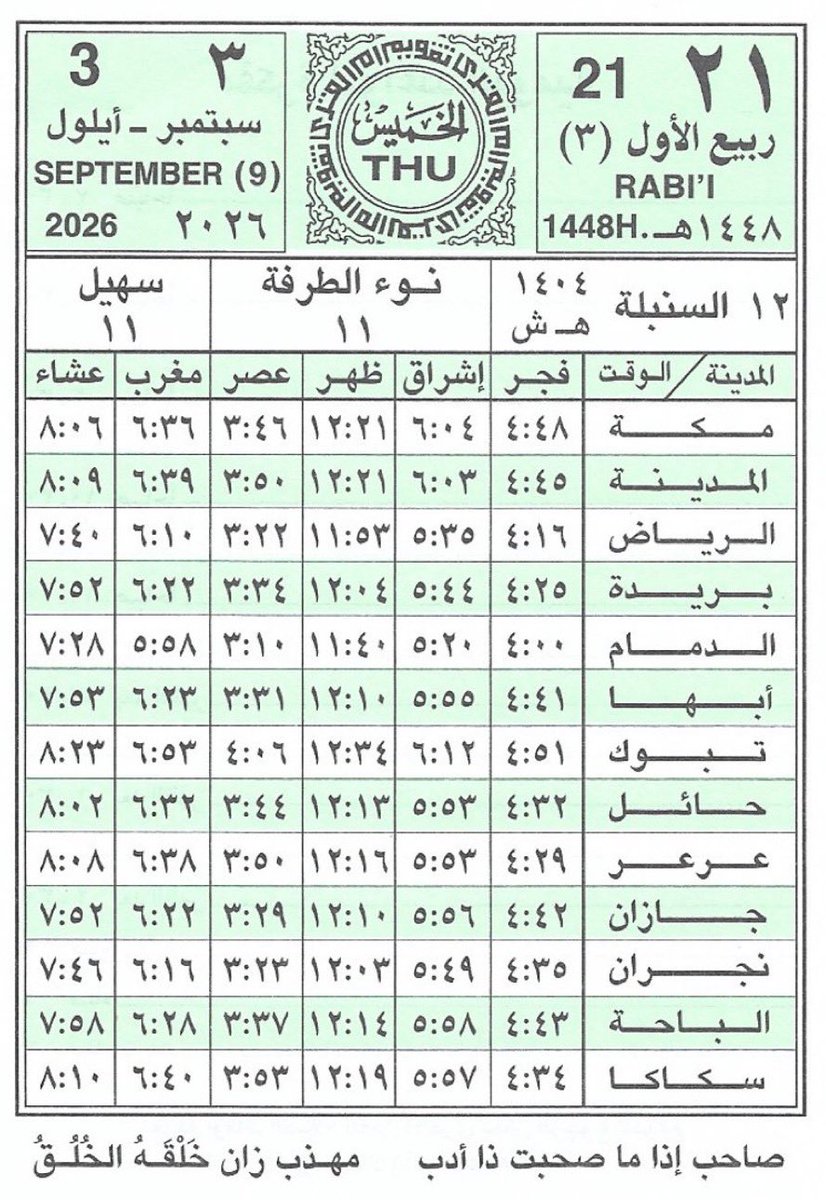 ٢١ 21
ربيع الأول (٣)
RABI'I
1448H. ١٤٤٨هـ
الخميس
THU
3 ٣
سبتمبر - أيلول
SEPTEMBER (9)
2026 ٢٠٢٦
١٢ السنبلة ١٤٠٤ هـ ش
نوء الطرفة ١١
سهيل ١١
المدينة / الوقت فجر إشراق ظهر عصر مغرب عشاء
مكة ٤:٤٨ ٦:٠٤ ١٢:٢١ ٣:٤٦ ٦:٣٦ ٨:٠٦
المدينة ٤:٤٥ ٦:٠٣ ١٢:٢١ ٣:٥٠ ٦:٣٩ ٨:٠٩
الرياض ٤:١٦ ٥:٣٥ ١١:٥٣ ٣:٢٢ ٦:١٠ ٧:٤٠
بريدة ٤:٢٥ ٥:٤٤ ١٢:٠٤ ٣:٣٤ ٦:٢٢ ٧:٥٢
الدمام ٤:٠٠ ٥:٢٠ ١١:٤٠ ٣:١٠ ٥:٥٨ ٧:٢٨
أبها ٤:٤١ ٥:٥٥ ١٢:١٠ ٣:٣١ ٦:٢٣ ٧:٥٣
تبوك ٤:٥١ ٦:١٢ ١٢:٣٤ ٤:٠٦ ٦:٥٣ ٨:٢٣
حائل ٤:٣٢ ٥:٥٣ ١٢:١٣ ٣:٤٤ ٦:٣٢ ٨:٠٢
عرعر ٤:٢٩ ٥:٥٣ ١٢:١٦ ٣:٥٠ ٦:٣٨ ٨:٠٨
جازان ٤:٤٢ ٥:٥٦ ١٢:١٠ ٣:٢٩ ٦:٢٢ ٧:٥٢
نجران ٤:٣٥ ٥:٤٩ ١٢:٠٣ ٣:٢٣ ٦:١٦ ٧:٤٦
الباحة ٤:٤٣ ٥:٥٨ ١٢:١٤ ٣:٣٧ ٦:٢٨ ٧:٥٨
سكاكا ٤:٣٤ ٥:٥٧ ١٢:١٩ ٣:٥٣ ٦:٤٠ ٨:١٠
صاحب إذا ما صحبت ذا أدب مهذب زان خَلْقَهُ الخُلُقُ